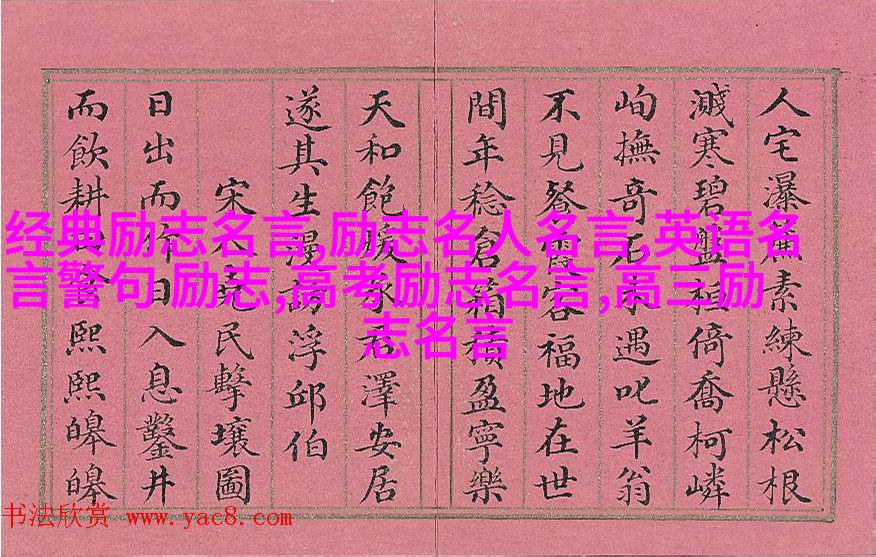 人宅瀑簾素練懸松根
濺寒碧盤桓倚喬柯嶙
峋撫奇石遇叱羊翁
不見餐霞客福地在世
間年稔倉箱積盈寧樂
天和飽煖澤安居
遂其生漫訪浮邱伯
宋人堯民擊壤圖
日出而作日入息鑿井
而飲耕食熙熙皞皞
经典励志名言,励志名人名言,英语名
言警句 励志,高考励志名言,高三励
志名言
书法欣赏 www.yac8.com